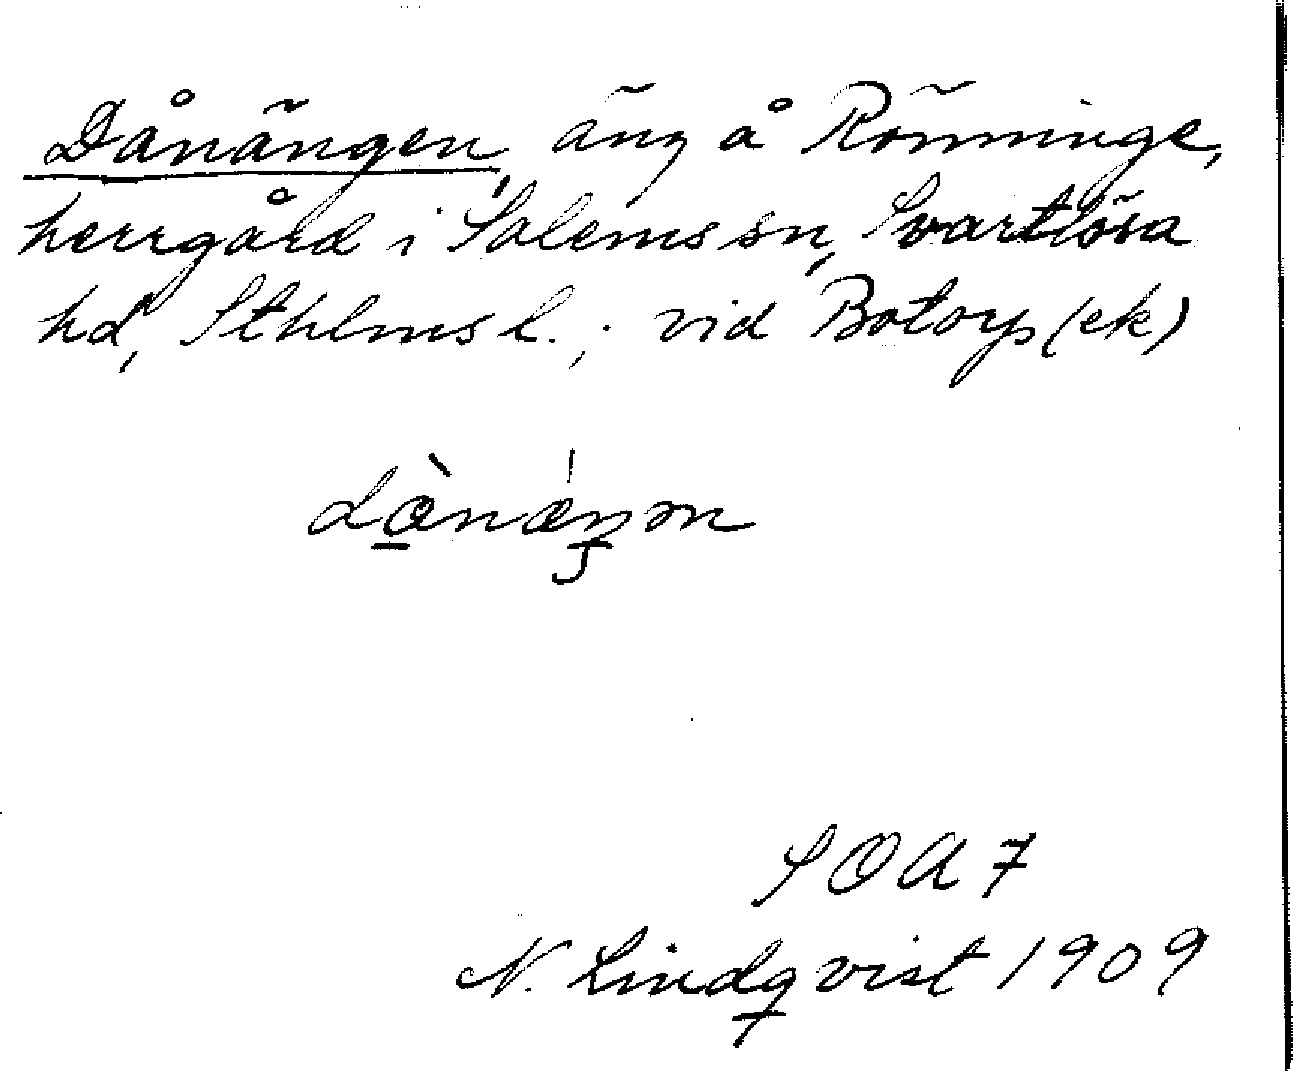 Dånängen, äng å Rönninge,
herrgård i Salems sn, Svartlösa
hd, Sthlms l.; vid Botorp (ek)
SOA 7
N. Lindqvist 1909